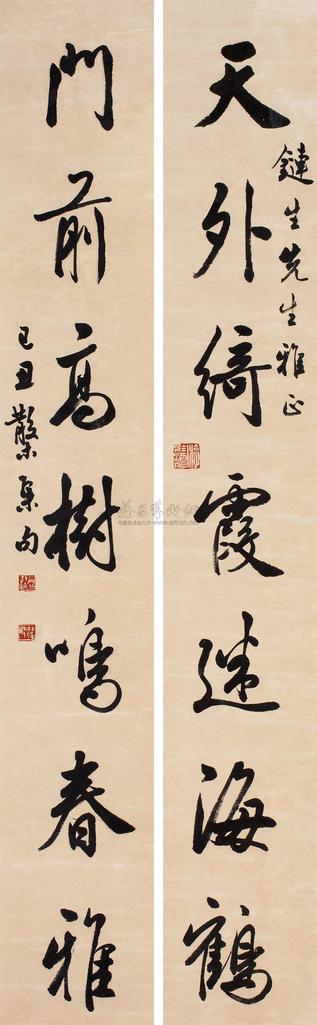 鏈生先生雅正
天外綺霞迷海鶴
門前高樹鳴春雅
己丑 集句